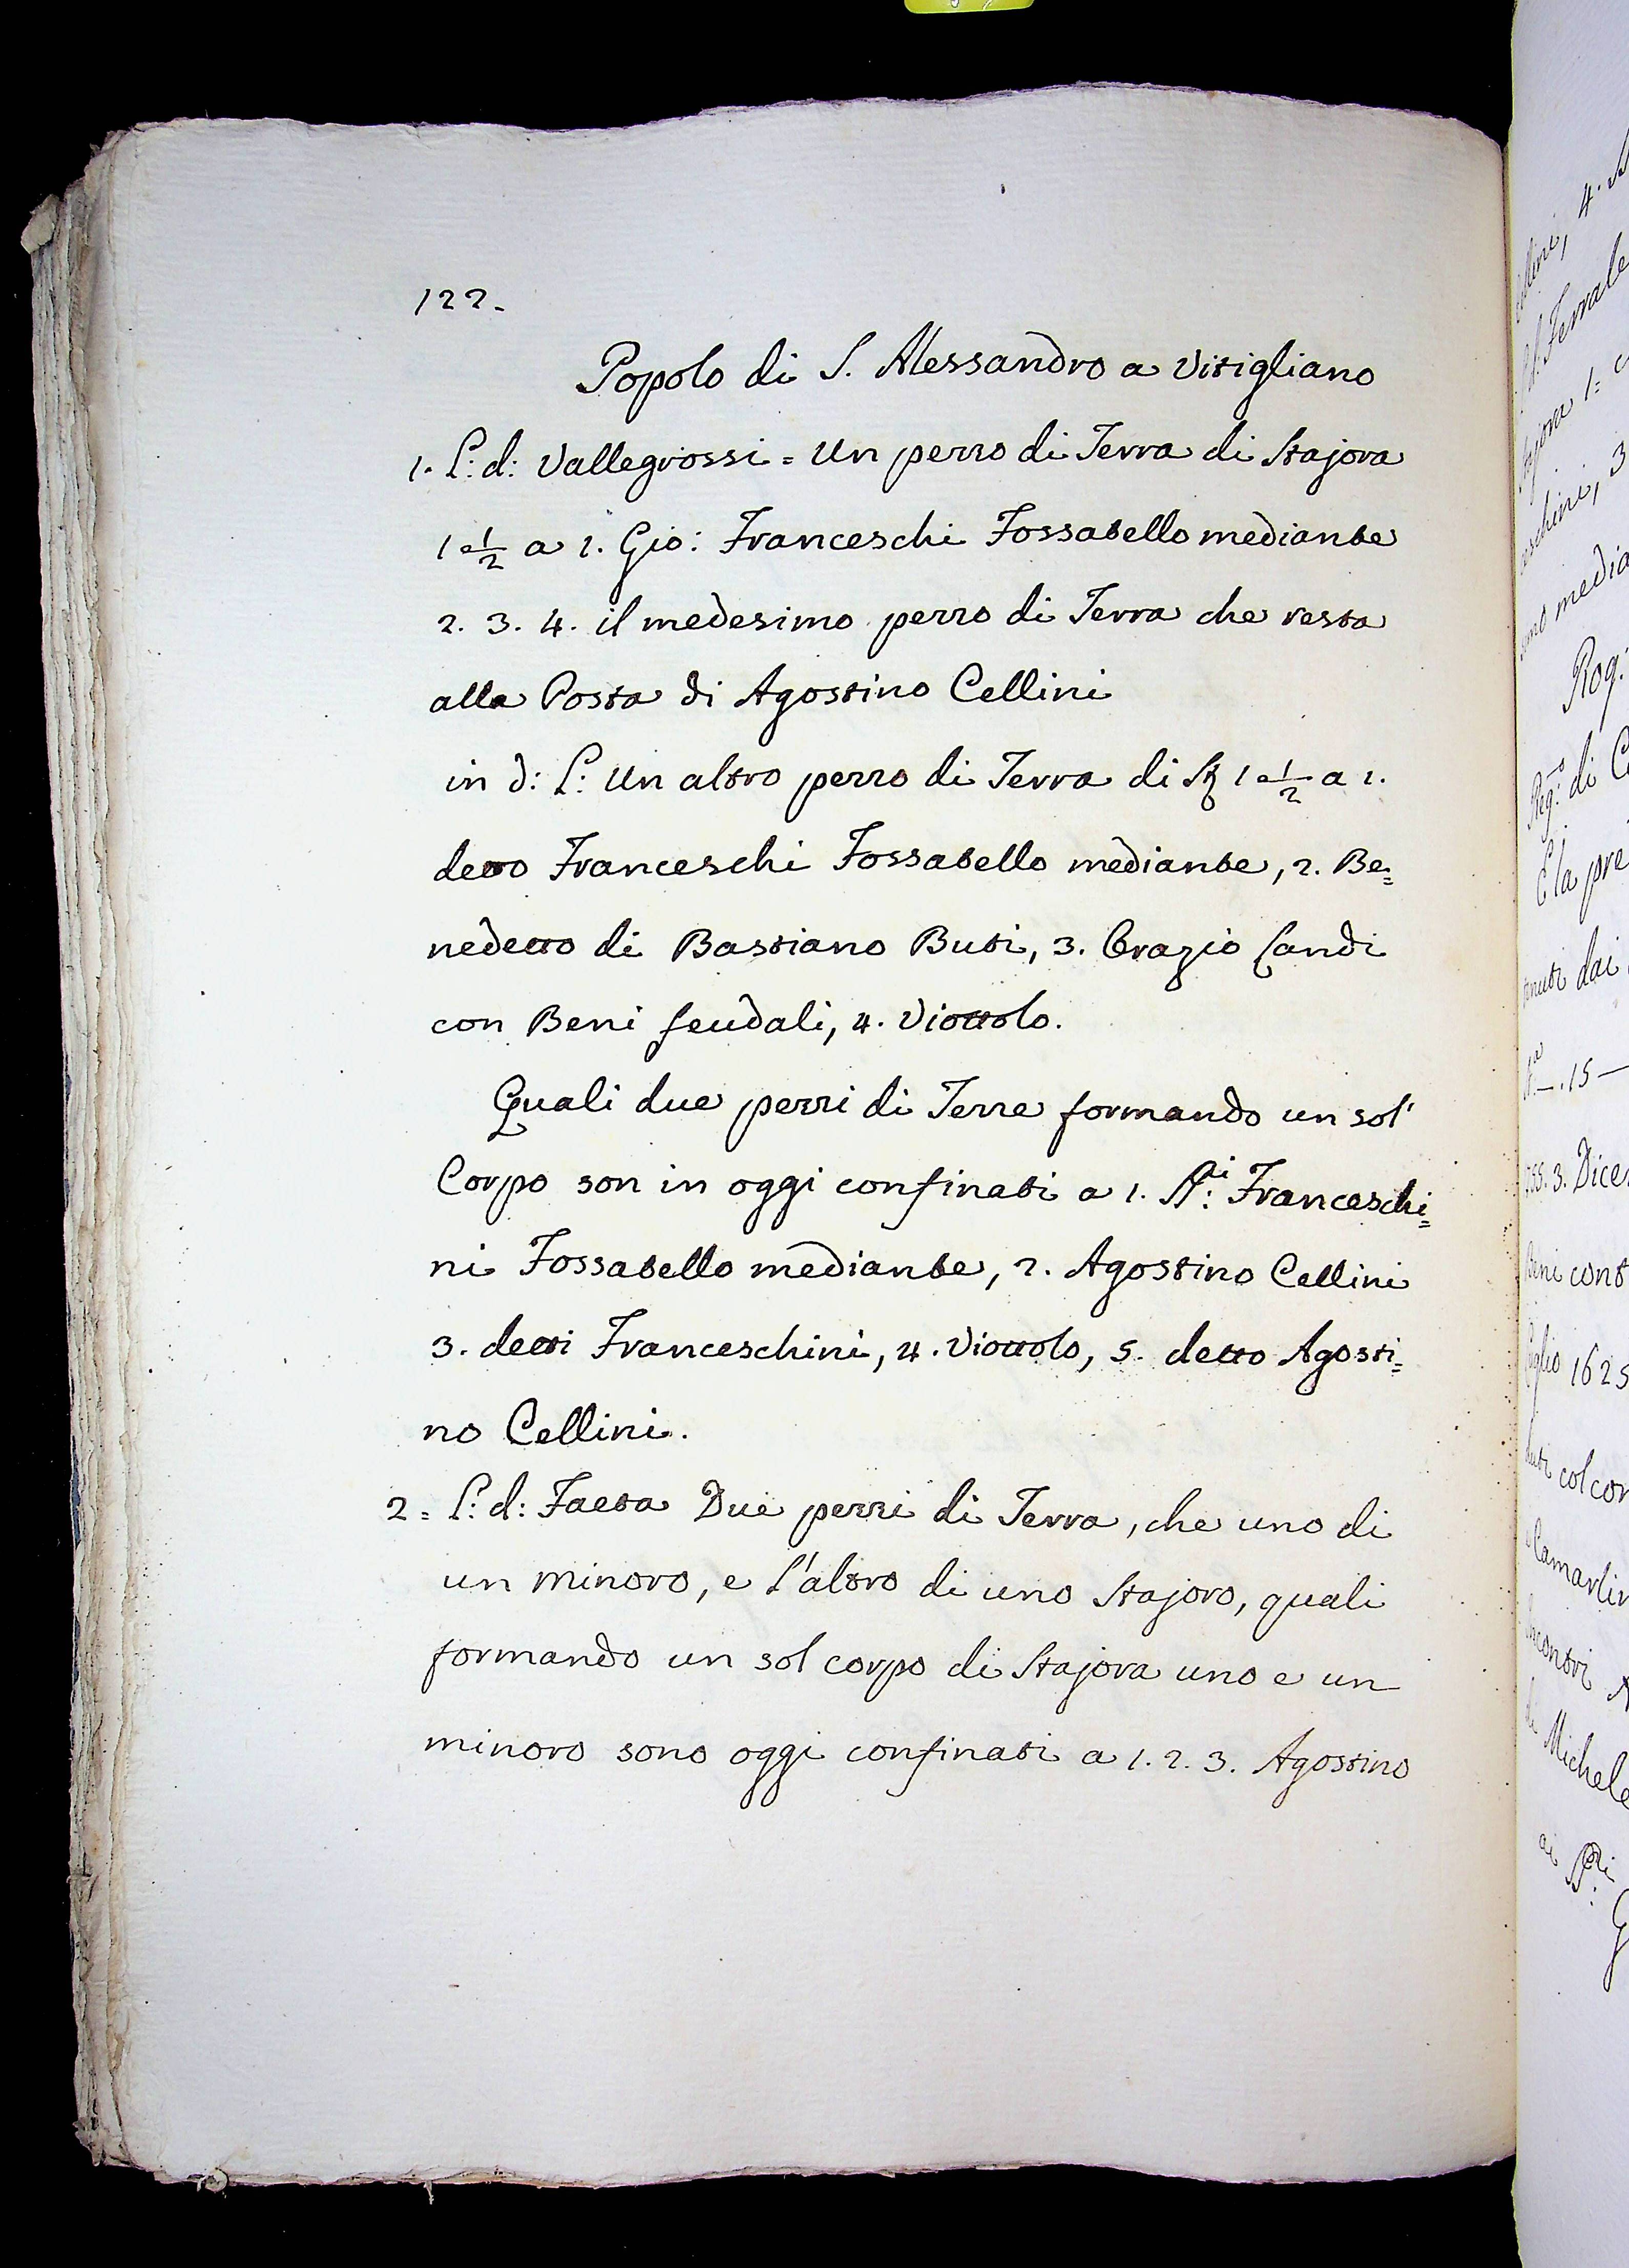 122.
Popolo di S. Alessandro a Vitigliano
1. L: d: Vallegrossi = Un pezzo di Terra di Stajora
1 1/2 a 1. Gio: Franceschi Fossatello mediante
2. 3. 4. il medesimo pezzo di Terra che resta
alla Posta di Agostino Cellini
in d: L: Un altro pezzo di Terra di St 1 1/2 a 1.
detto Franceschi Fossatello mediante, 2. Be=
nedetto di Bastiano Buti, 3. Orazio Landi
con Beni feudali, 4. Viottolo.
Quali due pezzi di Terre formando un sol'
Corpo son in oggi confinati a 1. SS:i Franceschi=
ni Fossatello mediante, 2. Agostino Cellini
3. detti Franceschini, 4. Viottolo, 5. detto Agosti=
no Cellini.
2= L: d: Faeta Due pezzi di Terra, che uno di
un minoro, e l'altro di uno Stajoro, quali
formando un sol corpo di Stajora uno e un
minoro sono oggi confinati a 1. 2. 3. Agostino
4.
Terrale
1=
3
media
Rog:
Reg:o di
E la pre
dai
15
3. Dice
Beni cont
1625
col con
Camarlin
Michele
ai